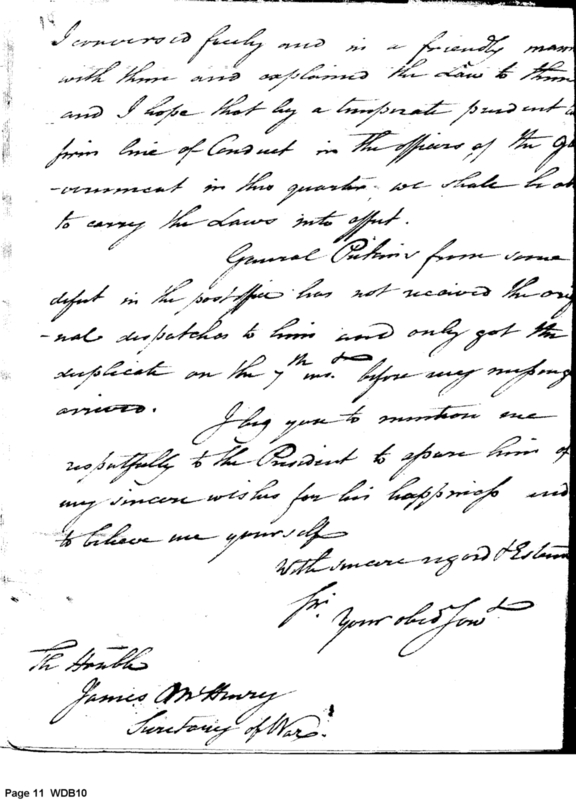 I conversed freely and in a friendly mann
with them and explained the Law to them
and I hope that by a temperate prudent &
firm line of Conduct in the officers of the Go
-vernment in this quarter, we shall be ab
to carry the Laws into effect.
General Pickins from some
defect in the post office has not received the orig
-nal dispatches to him and only got the
duplicate on the 7th inst. before my messeng
arrived.
I beg you to mention me
respectfully to the President to assure him of
my sincere wishes for his happiness and
to believe me yourself
With sincere regard & Esteem
Sir.
Your obedt Servt
The Honble
James McHenry
Secretary of War.
Page 11 WDB10